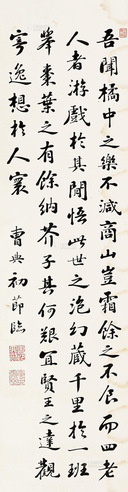 吾聞橘中之樂不減商山豈霜餘之不食而四老
人者游戲於其間悟此世之泡幻藏千里於一班
舉棗葉之有餘納芥子其何艱宜賢王之達觀
寄逸想於人寰 曹典初節臨